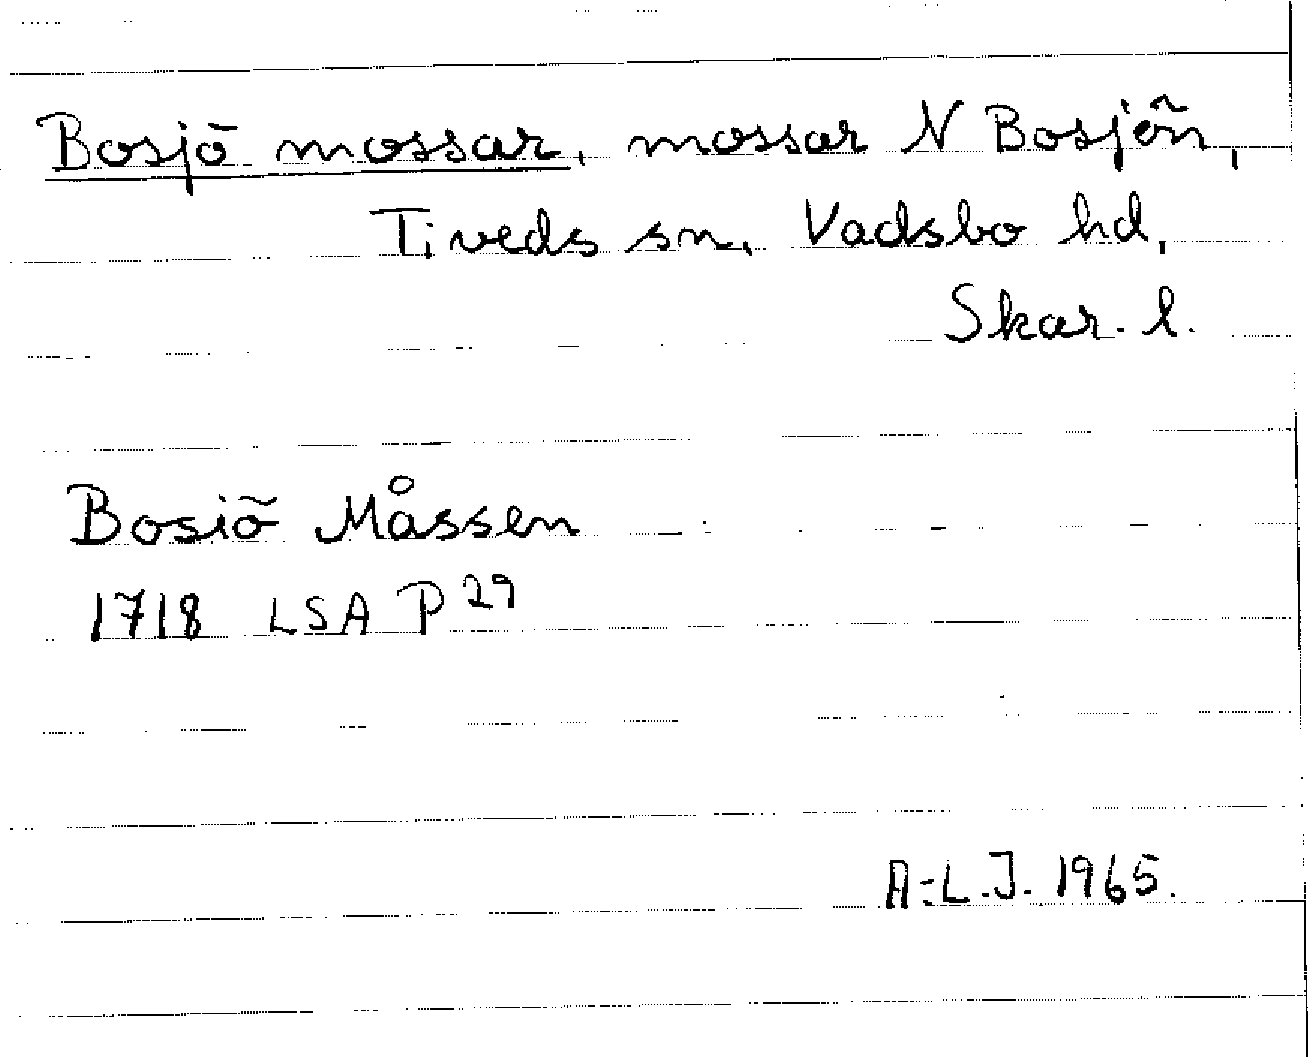 Bosjö mossar, mossar N Bosjön,
Tiveds sn, Vadsbo hd,
Skar. l.
Bosiö Måssen
1718 LSA P 29
A-L.J. 1965.